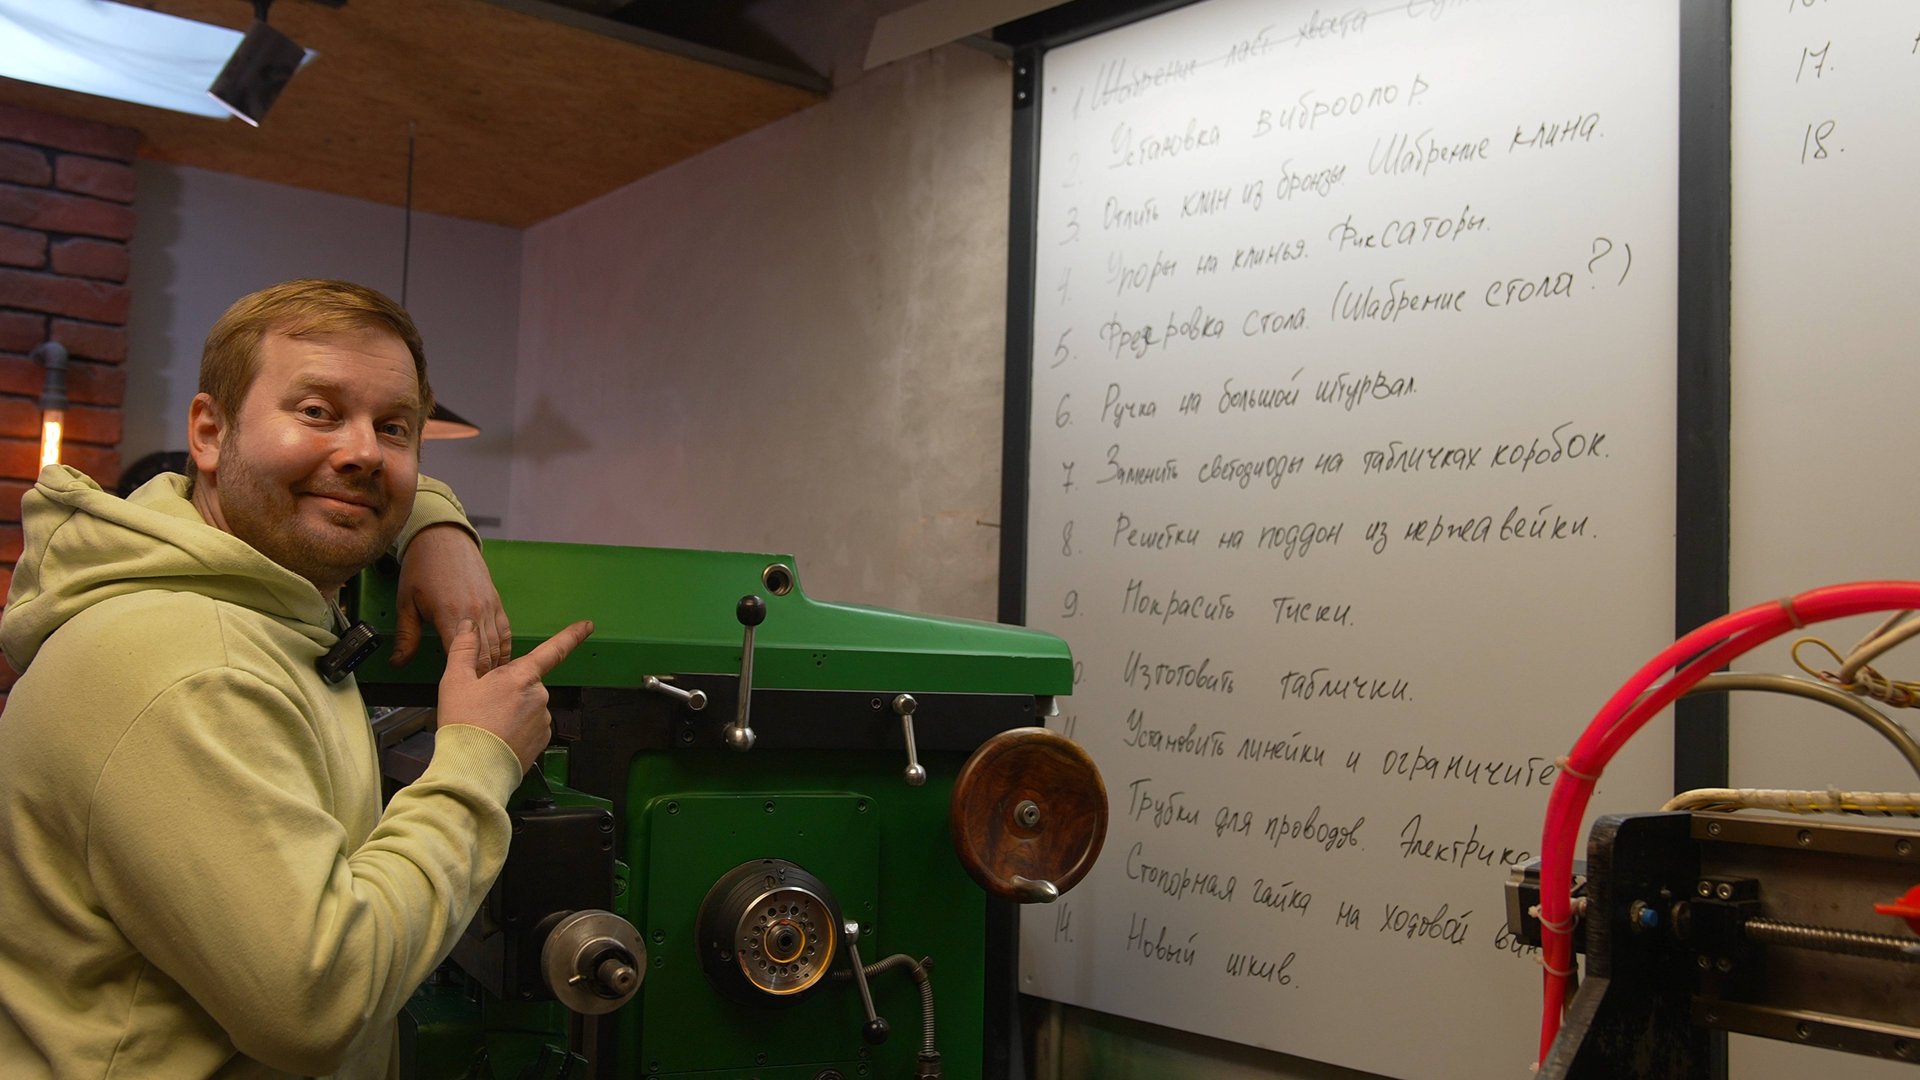 1 Шабрение ласт. хвоста
2. Установка виброопор
3. Отлить клин из бронзы. Шабрение клина.
4. Упоры на клинья. Фиксаторы.
5. Фрезеровка стола. (Шабрение стола?)
6. Ручка на большой штурвал.
7. Заменить светодиоды на табличках коробок.
8. Решетки на поддон из нержавейки.
9. Покрасить тиски.
0. Изготовить таблички.
11 Установить линейки и ограничите
Трубки для проводов. Электрика
Стопорная гайка на ходовой вин
14. Новый шкив.
17.
18.